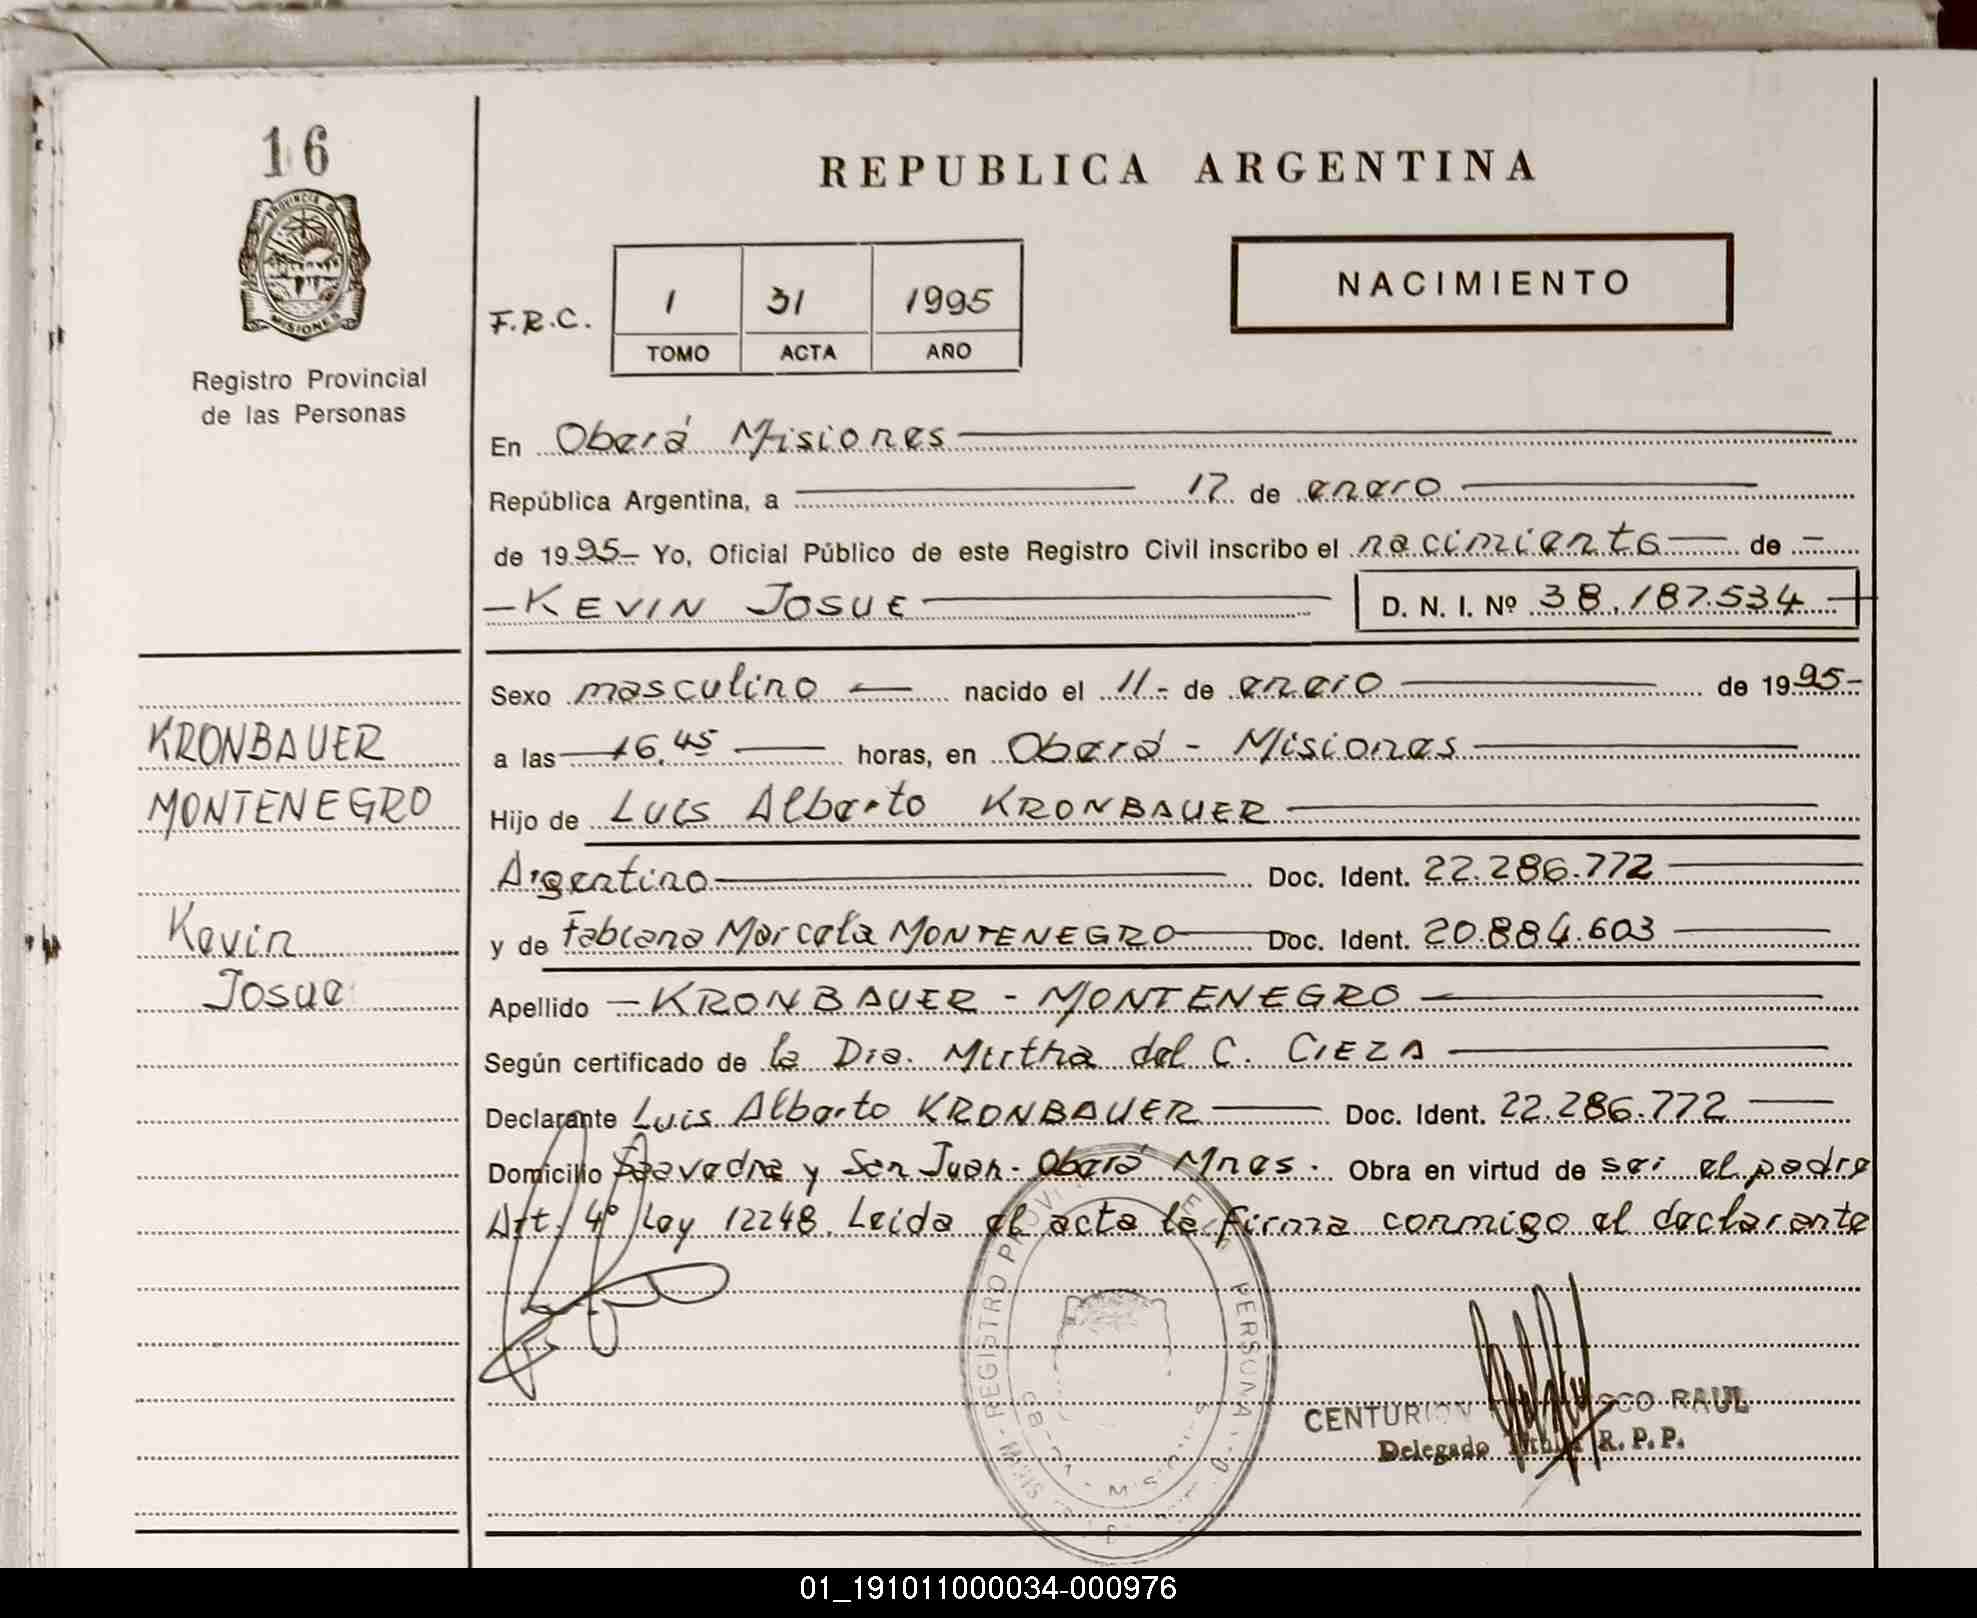 16
PROVINCIA D
MISIONES
Registro Provincial
de las Personas
REPUBLICA ARGENTINA
F.R.C.
1 31 1995
TOMO ACTA AÑO
NACIMIENTO
En Oberá Misiones
República Argentina, a 17 de enero
de 1995- Yo, Oficial Público de este Registro Civil inscribo el nacimiento de -
- KEVIN JOSUE D. N. I. Nº 38.187.534
Sexo masculino nacido el 11.- de enero de 1995-
a las 16,45 horas, en Oberá - Misiones
Hijo de Luis Alberto KRONBAUER
Argentino Doc. Ident. 22.286.772
y de Fabiana Marcela MONTENEGRO Doc. Ident. 20.884.603
Apellido - KRONBAUER - MONTENEGRO
Según certificado de la Dra. Mirtha del C. CIEZA
Declarante Luis Alberto KRONBAUER Doc. Ident. 22.286.772
Domicilio Saavedra y San Juan - Oberá Mnes. Obra en virtud de ser el padre
Art. 4º Ley 12248. Leida el acta la firma conmigo el declarante
KRONBAUER
MONTENEGRO
Kevin
Josue
REGISTRO PROVI PERSONA
CENTURION SCO RAUL
Delegado R. P. P.
01_191011000034-000976